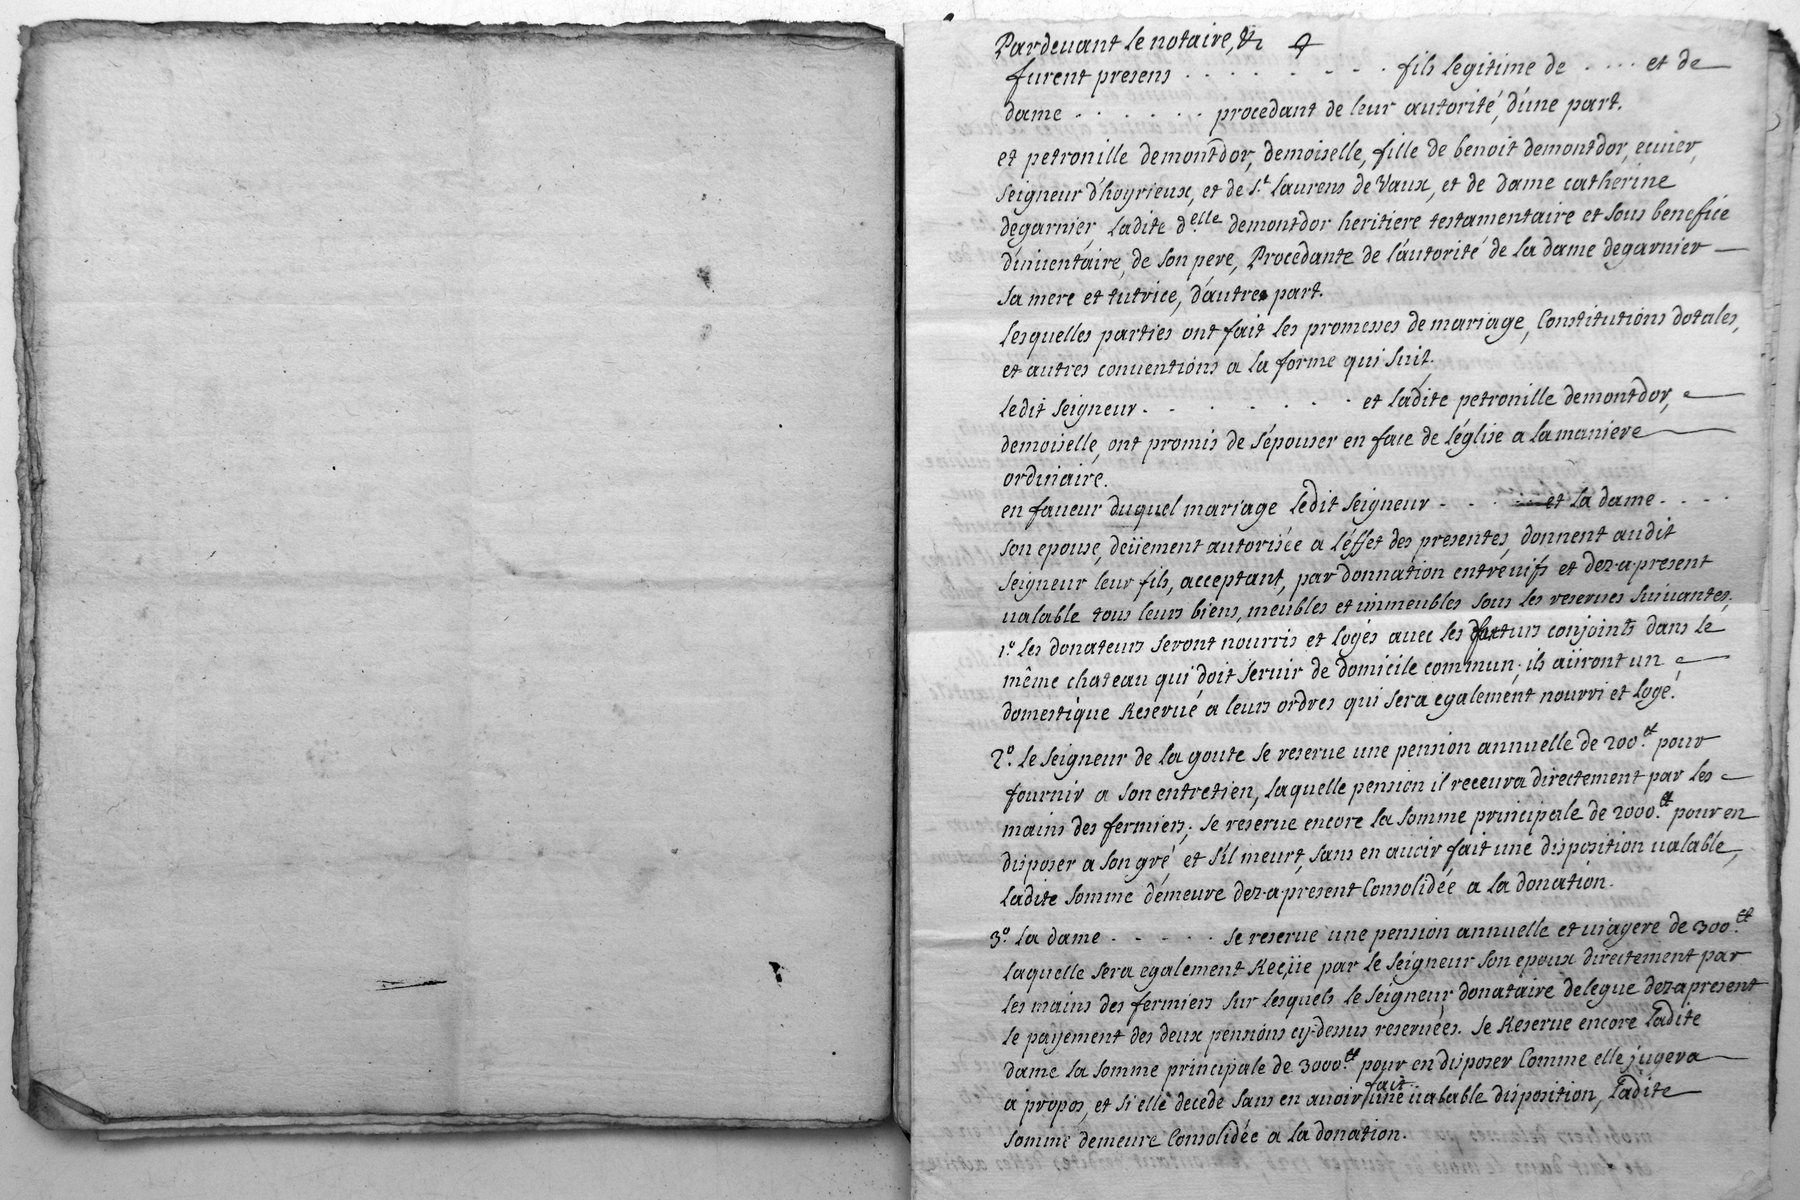 Pardevant le notaire, &c
furent presens . . . . . . . . fils legitime de . . . . et de
dame . . . . . . procedant de leur autorité, d'une part.
et petronille demontdor, demoiselle, fille de benoit demontdor, ecuier,
seigneur d'hoyrieux, et de s.t laurens de vaux, et de dame catherine
degarnier ladite d.elle demontdor heritiere testamentaire et sous benefice
d'inventaire, de son pere, Procedante de l'autorité de la dame degarnier
sa mere et tutrice, d'autre part.
lesquelles parties ont fait les promesses de mariage, Constitutions dotales,
et autres conventions a la forme qui suit.
ledit seigneur . . . . . . . et ladite petronille demontdor,
demoiselle, ont promis de s'épouser en face de l'église a la maniere
ordinaire.
en faveur duquel mariage ledit seigneur . . . . et la dame . . . .
son epouse, deüement autorisée a l'éffet des presentes, donnent audit
seigneur leur fils, acceptant, par donnation entrevifs et dez-a-present
valable tous leurs biens, meubles et immeubles sous les reserves suivantes,
1.o les donateurs seront nourris et logés avec les futurs conjoints dans le
même chateau qui doit servir de domicile commun; ils aüront un
domestique Reservé a leurs ordres qui sera egalement nourri et logé.
2.o le seigneur de la goute se reserve une pension annuelle de 200.tt pour
fournir a son entretien, laquelle pension il recevra directement par les
mains des fermiers; se reserve encore la somme principale de 2000.tt pour en
disposer a son gré, et s'il meurt, sans en avoir fait une disposition valable,
ladite somme demeure dez-a-present Consolidée a la donation.
3.o la dame . . . . . se reserve une pension annuelle et viagere de 300.tt
laquelle sera egalement Reçüe par le seigneur son epoux directement par
les mains des fermiers sur lesquels le seigneur donataire delegue dez-a-present
le payement des deux pensions cy-dessus reservées. se Reserve encore ladite
dame la somme principale de 3000.tt pour en disposer Comme elle jugera
a propos, et si elle decede sans en avoir fait une valable disposition, ladite
somme demeure Consolidée a la donation.